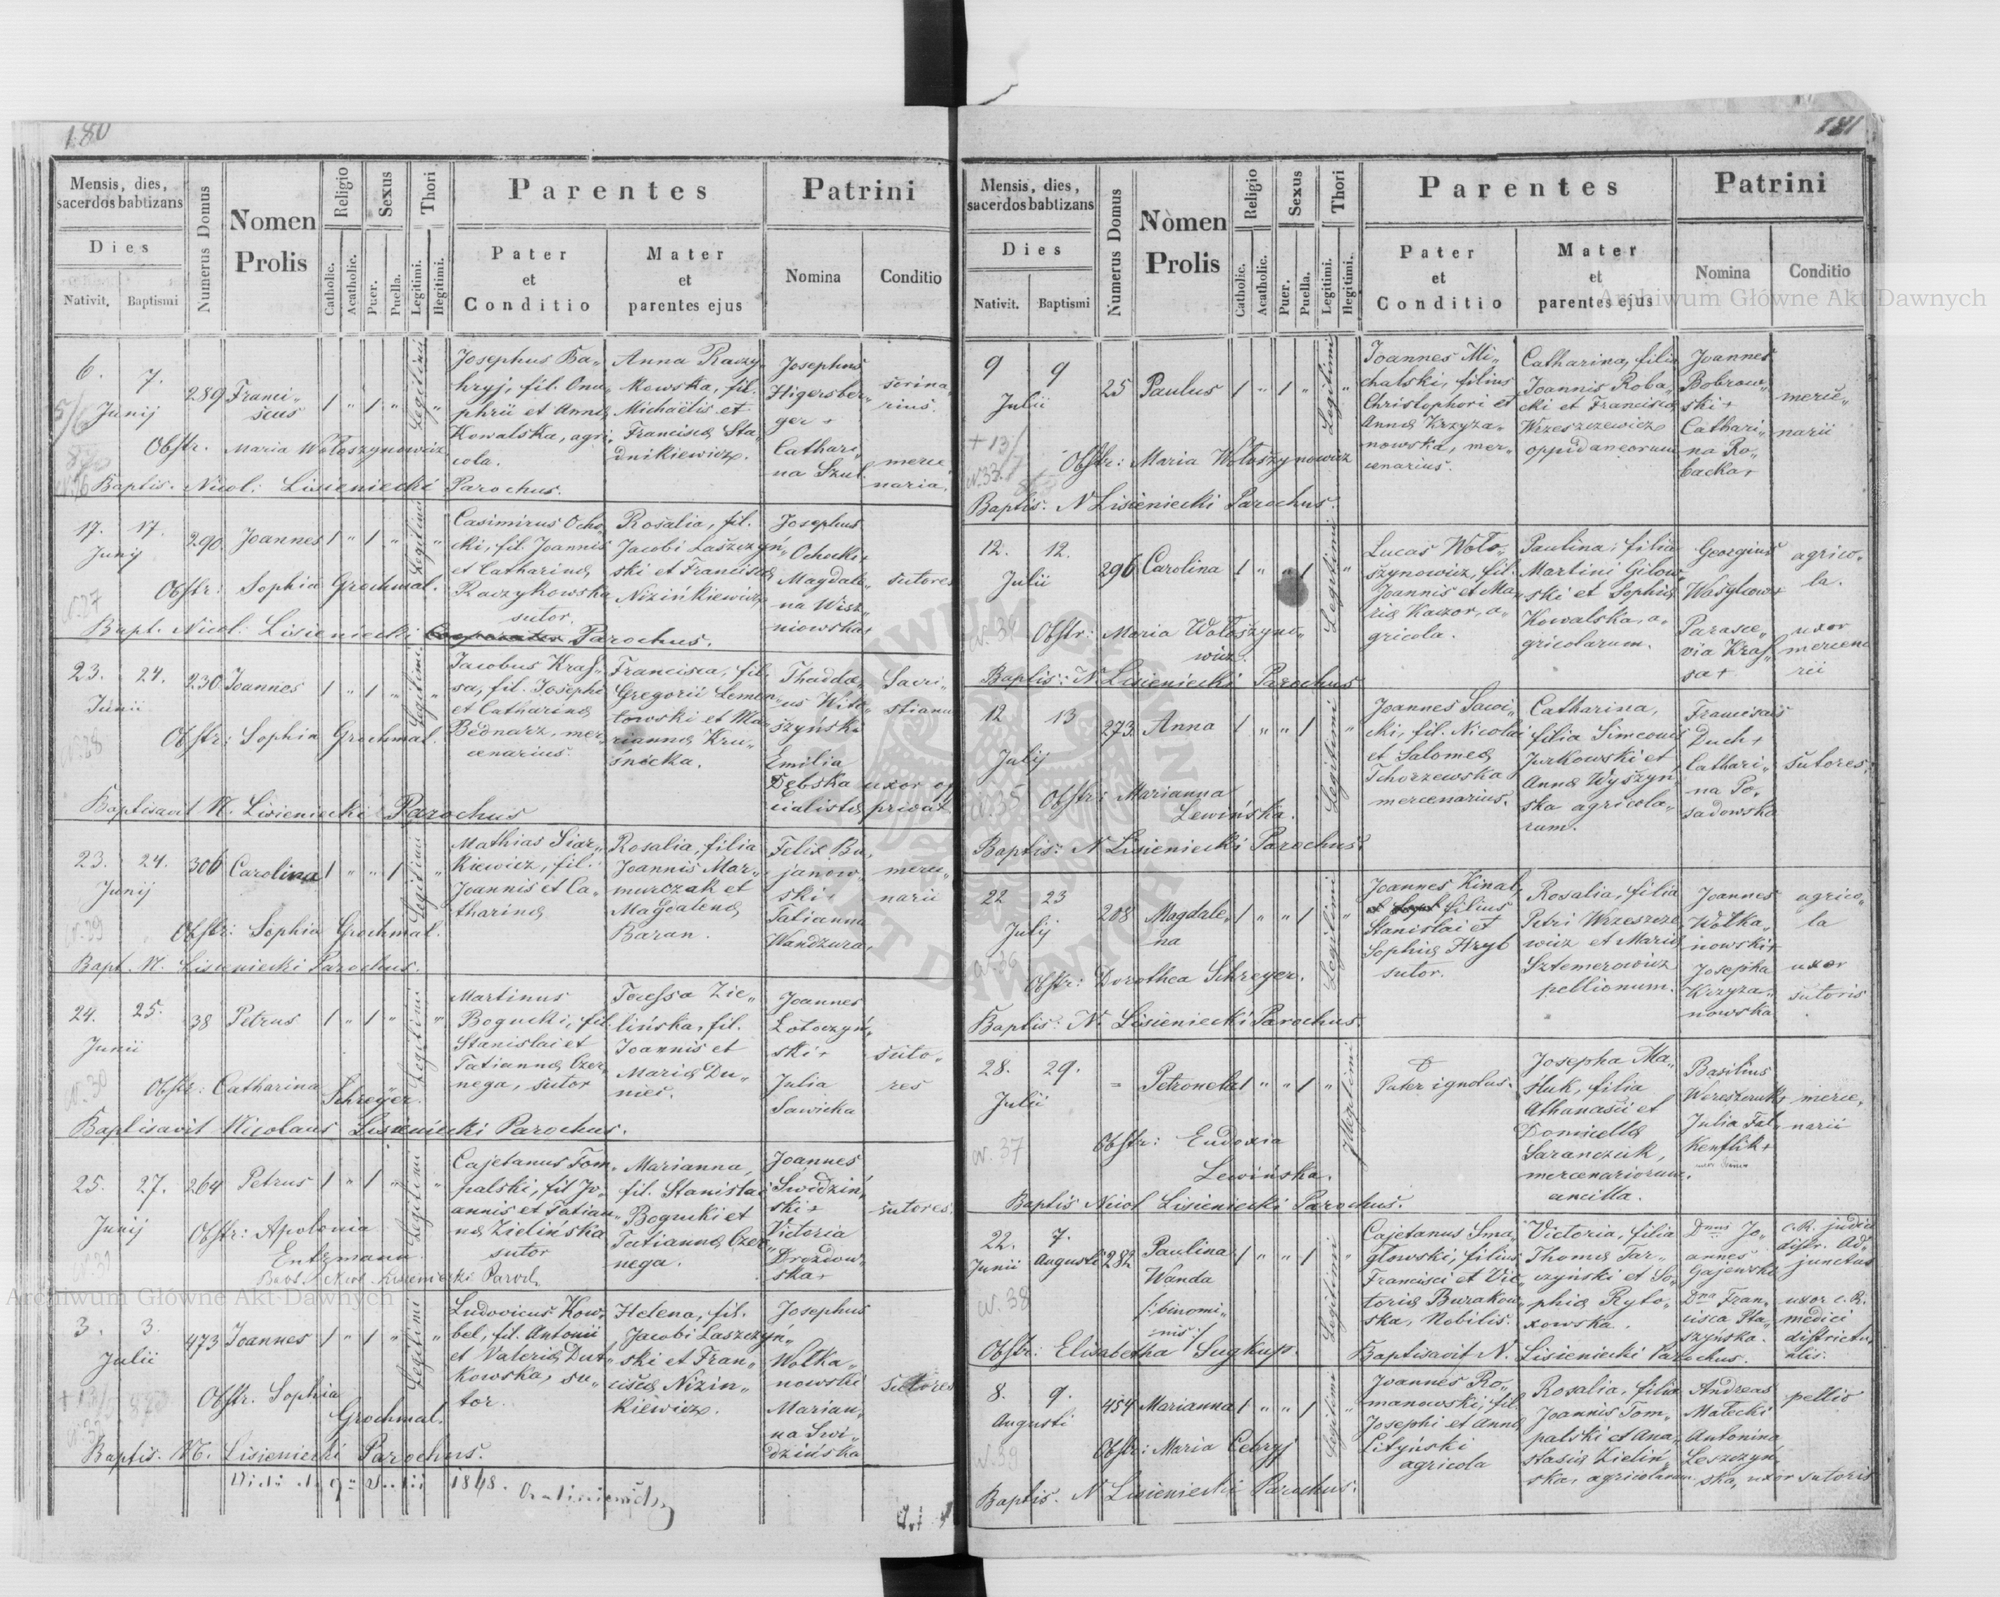 180
Mensis, dies,
sacerdos babtizans
Dies
Nativit.
Baptismi
Numerus Domus
Nomen
Prolis
Religio
Catholic.
Acatholic.
Sexus
Puer.
Puella.
Thori
Legitimi.
Illegitimi.
Parentes
Pater
et
Conditio
Mater
et
parentes ejus
Patrini
Nomina
Conditio
6.
7.
Junij
289
Franci-
scus
1 " 1 " "
Legitimi
Josephus Ba-
hryj, fil. Onu-
phrii et Anna
Kowalska, agri-
cola.
Anna Raczy-
kowska, fil.
Michaëlis et
Francisca Sta-
dnikiewicz.
Josephus
Higersber-
ger +
Cathari-
na Szul.
merce-
naria.
Obstr. Maria Wołoszynowicz
Baptis. Nicol: Lisieniecki Parochus.
17.
17.
Junij
290.
Joannes
1 " 1 " "
Legitimi
Casimirus Ocho-
cki, fil. Joannis
et Catharina
Raczykowska
sutor.
Rosalia, fil.
Jacobi Laszczyń-
ski et Francisca
Nizińkiewicz
Josephus
Ochocki+
Magdale-
na Wisz-
niowska+
sutores
Obstr: Sophia Grochmal.
Bapt. Nicol: Lisieniecki Cooperator Parochus.
23.
24.
Junii
230
Joannes
1 " 1 " "
Legitimi
Jacobus Kras-
sa, fil. Josephi
et Catharina
Bednarz, mer-
cenarius.
Francisca, fil.
Gregorii Lemen-
towski et Ma-
rianna Kru-
snicka.
Thaddä-
us Wito-
szyński
Emilia
Dębska
cialista
Sacri-
stianus
uxor off
privat.
Obstr: Sophia Grochmal.
Baptisavit N. Lisieniecki Parochus
23.
24.
Junij
306
Carolina
1 " " 1 "
Legitimi
Mathias Siar-
kiewicz, fil.
Joannis et Ca-
tharina
Rosalia, filia
Joannis Mar-
murczak et
Magdalena
Baran.
Felix Bu-
janow-
ski+
Tatianna
Wandzura.
merce-
narii
Obstr: Sophia Grochmal.
Bapt. N. Lisieniecki Parochus.
24.
25.
Junii
38
Petrus
1 " 1 " "
Legitimi
Martinus
Bogucki, fil.
Stanislai et
Tatianna Czer-
nega, sutor
Teressa Zie-
lińska, fil.
Joannis et
Maria Du-
niec.
Joannes
Łotoczyń-
ski+
Julia
Sawicka
suto-
res
Obstr: Catharina Schreyer.
Baptisavit Nicolaus Lisieniecki Parochus.
25.
27.
Junij
264
Petrus
1 " 1 " "
Legitimi
Cajetanus Tom-
palski, fil Jo-
annis et Tatian-
na Zielińska
sutor
Marianna,
fil. Stanislai
Bogucki et
Tatianna Czer-
nega.
Joannes
Świdziń-
ski+
Victoria
Drozdow-
ska+
sutores.
Obstr: Apolonia
Entzmann.
Bapt. Nicol. Lisieniecki Paroch.
3.
3.
Julii
473
Joannes
1 " 1 " "
Legitimi
Ludovicus Kow-
bel, fil. Antonii
et Valeria Dut-
kowska, su-
tor.
Helena, fil.
Jacobi Laszczyń-
ski et Fran-
cisca Nizin-
kiewicz.
Josephus
Wołka-
nowski
Marian-
na Swi-
dzińska
sutores
Obstr. Sophia
Grochmal.
Baptis. N. Lisieniecki Parochus.
1848.
181
Mensis, dies,
sacerdos babtizans
Dies
Nativit.
Baptismi
Numerus Domus
Nomen
Prolis
Religio
Catholic.
Acatholic.
Sexus
Puer.
Puella.
Thori
Legitimi.
Illegitimi.
Parentes
Pater
et
Conditio
Mater
et
parentes ejus
Patrini
Nomina
Conditio
9
9
Julii
25
Paulus
1 " 1 " "
Legitimi
Joannes Mi-
chalski, filius
Christophori et
Anna Krzyza-
nowska, mer-
cenarius.
Catharina, filia
Joannis Roba-
cki et Francisca
Wrzeszczewicz
oppidaneorum
Joannes
Bobrow-
ski+
Cathari-
na Ro-
backa+
merce-
narii
Obstr: Maria Wołoszynowicz
Baptis: N Lisieniecki Parochus.
12.
12.
Julii
296
Carolina
1 " " 1 "
Legitimi
Lucas Woło-
szynowicz, fil.
Joannis et Ma-
ria Kaczor, a-
gricola.
Paulina, filia
Martini Gilow-
ski et Sophia
Kowalska, a-
gricolarum.
Georgius
Wasylcow+
Parasce-
via Kras-
sa+
agrico-
la.
uxor
mercena
rii
Obstr: Maria Wołoszyno-
wicz.
Baptis: N Lisieniecki Parochus
12
13
Julij
273.
Anna
1 " " 1 "
Legitimi
Joannes Sawi-
cki, fil. Nicolai
et Salomea
Tchorzewska
mercenarius.
Catharina,
filia Simeonis
Jurkowski et
Anna Wyszyn-
ska agricola-
rum.
Franciscus
Duch+
Cathari-
na Po-
sadowska
sutores.
Obstr: Marianna
Lewińska.
Baptis: N Lisieniecki Parochus.
22
23
Julij
208
Magdale-
na
1 " " 1 "
Legitimi
Joannes Kinal,
filius
Stanislai et
Sophia Hryb
sutor.
Rosalia, filia
Petri Wrzeszcze-
wicz et Maria
Sztemerowicz
pellionum.
Joannes
Wołka-
nowski+
Josepha
Krzyza-
nowska
agrico-
la
uxor
sutoris
Obstr: Dorothea Schreyer.
Baptis: N. Lisieniecki Parochus.
28.
29.
Julii
"
Petronela
1 " " 1 "
Illegitimi
Pater ignotus.
Josepha Ma-
śluk, filia
Athanasii et
Domicella
Saranczuk,
mercenariorum.
ancilla.
Basilius
Wereszczuk+
Julia Fal-
kenflik+
merce-
narii
N. 37
Obstr: Eudoxia
Lewińska.
Baptis Nicol Lisieniecki Parochus.
22.
Junii
7.
Augusti
282
Paulina
Wanda
/:binomi-
nis:/
1 " " 1 "
Legitimi
Cajetanus Sma-
głowski, filius
Francisci et Vic-
toria Burakow-
ska, Nobilis.
Victoria, filia
Thoma Tar-
czyński et So-
phia Ryto-
xowska.
Dnus Jo-
annes
Gajewski
Dna Fran-
cisca Sta-
szyńska.
C. R. judicii
distr. Ad-
junctus
uxor C. R.
medici
districtu-
alis.
N. 38
Obstr: Elisabetha Sugkup.
Baptisavit N. Lisieniecki Parochus.
8.
9.
Augusti
454
Marianna
1 " " 1 "
Legitimi
Joannes Ro-
manowski, fil.
Josephi et Anna
Lityński
agricola
Rosalia, filia
Joannis Tom-
palski et Ana-
stasia Zieliń-
ska, agricolarum
Andreas
Małecki
Antonina
Leszczyń-
ska, uxor sutoris
pellio
N. 39
Obstr: Maria Cebryj
Baptis. N Lisieniecki Parochus.
Archiwum Główne Akt Dawnych
Archiwum Główne Akt Dawnych
ARCHIWUM GŁÓWNE AKT DAWNYCH